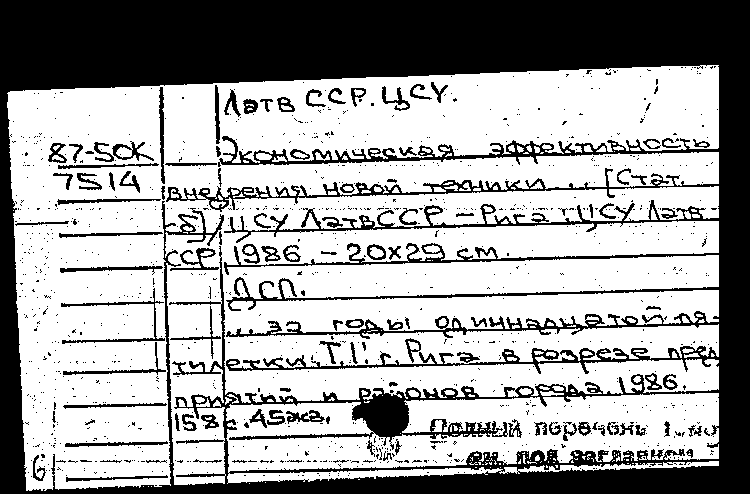 Латв ССР. ЦСУ.
87-5СК
Экономическая эффективность
7514
внедрения новой техники... [Стат.
сб] / ЦСУ ЛатвССР. - Рига : ЦСУ Латв
ССР, 1986. - 20х29 см.
ДСП.
... за годы одиннадцатой пя-
тилетки. Т. 1: г. Рига в розрезе пред
приятий и районов города. 1986.
158 с. 45экз.
Полный перечень
см. под заглавием
6